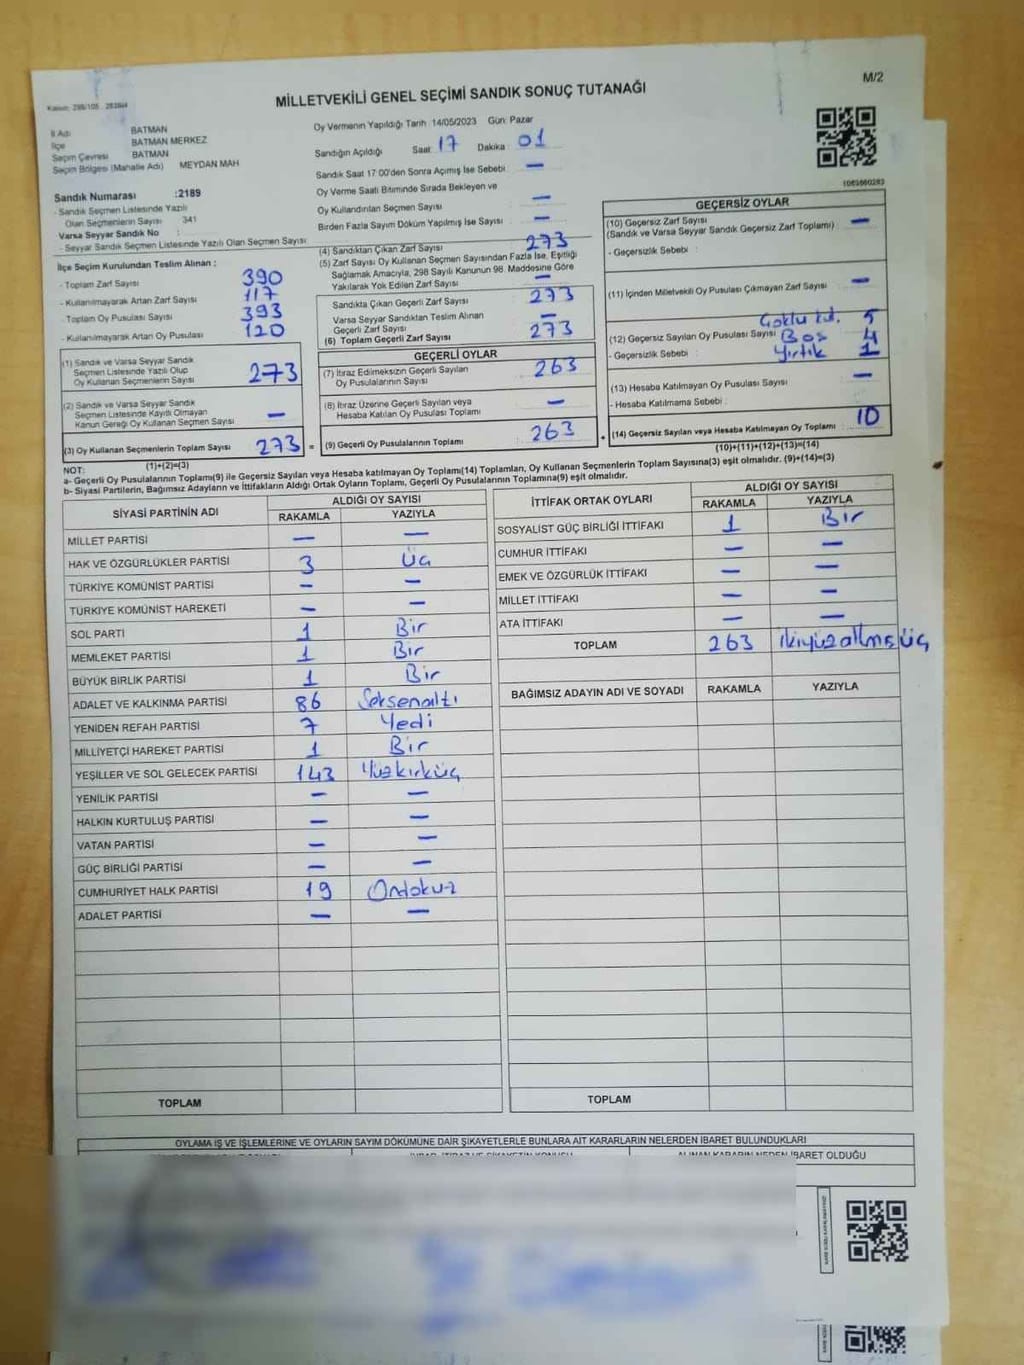 M/2
MİLLETVEKİLİ GENEL SEÇİMİ SANDIK SONUÇ TUTANAĞI
İl Adı BATMAN
İlçe BATMAN MERKEZ
Seçim Çevresi BATMAN
Seçim Bölgesi (Mahalle Adı) MEYDAN MAH
Sandık Numarası :2189
- Sandık Seçmen Listesinde Yazılı
Olan Seçmenlerin Sayısı 341
Varsa Seyyar Sandık No :
- Seyyar Sandık Seçmen Listesinde Yazılı Olan Seçmen Sayısı
Oy Vermenin Yapıldığı Tarih :14/05/2023 Gün: Pazar
Sandığın Açıldığı Saat: 17 Dakika: 01
Sandık Saat 17:00'den Sonra Açılmış İse Sebebi: —
Oy Verme Saati Bitiminde Sırada Bekleyen ve
Oy Kullandırılan Seçmen Sayısı —
Birden Fazla Sayım Döküm Yapılmış İse Sayısı —
İlçe Seçim Kurulundan Teslim Alınan :
- Toplam Zarf Sayısı 390
- Kullanılmayarak Artan Zarf Sayısı 117
- Toplam Oy Pusulası Sayısı 393
- Kullanılmayarak Artan Oy Pusulası 120
(1) Sandık ve Varsa Seyyar Sandık
Seçmen Listesinde Yazılı Olup
Oy Kullanan Seçmenlerin Sayısı 273
(2) Sandık ve Varsa Seyyar Sandık
Seçmen Listesinde Kayıtlı Olmayan
Kanun Gereği Oy Kullanan Seçmen Sayısı —
(3) Oy Kullanan Seçmenlerin Toplam Sayısı 273 =
(1)+(2)=(3)
(4) Sandıktan Çıkan Zarf Sayısı 273
(5) Zarf Sayısı Oy Kullanan Seçmen Sayısından Fazla İse, Eşitliği
Sağlamak Amacıyla, 298 Sayılı Kanunun 98. Maddesine Göre
Yakılarak Yok Edilen Zarf Sayısı —
Sandıkta Çıkan Geçerli Zarf Sayısı 273
Varsa Seyyar Sandıktan Teslim Alınan
Geçerli Zarf Sayısı —
(6) Toplam Geçerli Zarf Sayısı 273
GEÇERLİ OYLAR
(7) İtiraz Edilmeksizin Geçerli Sayılan
Oy Pusulalarının Sayısı 263
(8) İtiraz Üzerine Geçerli Sayılan veya
Hesaba Katılan Oy Pusulası Toplamı —
(9) Geçerli Oy Pusulalarının Toplamı 263 +
GEÇERSİZ OYLAR
(10) Geçersiz Zarf Sayısı
(Sandık ve Varsa Seyyar Sandık Geçersiz Zarf Toplamı) —
- Geçersizlik Sebebi :
(11) İçinden Milletvekili Oy Pusulası Çıkmayan Zarf Sayısı —
Çoklu tıt. 5
(12) Geçersiz Sayılan Oy Pusulası Sayısı Boş 4
- Geçersizlik Sebebi : Yırtık 1
(13) Hesaba Katılmayan Oy Pusulası Sayısı —
- Hesaba Katılmama Sebebi :
(14) Geçersiz Sayılan veya Hesaba Katılmayan Oy Toplamı : 10
(10)+(11)+(12)+(13)=(14)
NOT:
a- Geçerli Oy Pusulalarının Toplamı(9) ile Geçersiz Sayılan veya Hesaba katılmayan Oy Toplamı(14) Toplamları, Oy Kullanan Seçmenlerin Toplam Sayısına(3) eşit olmalıdır. (9)+(14)=(3)
b- Siyasi Partilerin, Bağımsız Adayların ve İttifakların Aldığı Ortak Oyların Toplamı, Geçerli Oy Pusulalarının Toplamına(9) eşit olmalıdır.
SİYASİ PARTİNİN ADI ALDIĞI OY SAYISI
RAKAMLA YAZIYLA
MİLLET PARTİSİ — —
HAK VE ÖZGÜRLÜKLER PARTİSİ 3 Üç
TÜRKİYE KOMÜNİST PARTİSİ — —
TÜRKİYE KOMÜNİST HAREKETİ — —
SOL PARTİ 1 Bir
MEMLEKET PARTİSİ 1 Bir
BÜYÜK BİRLİK PARTİSİ 1 Bir
ADALET VE KALKINMA PARTİSİ 86 Seksenaltı
YENİDEN REFAH PARTİSİ 7 Yedi
MİLLİYETÇİ HAREKET PARTİSİ 1 Bir
YEŞİLLER VE SOL GELECEK PARTİSİ 143 Yüzkırküç
YENİLİK PARTİSİ — —
HALKIN KURTULUŞ PARTİSİ — —
VATAN PARTİSİ — —
GÜÇ BİRLİĞİ PARTİSİ — —
CUMHURİYET HALK PARTİSİ 19 Ondokuz
ADALET PARTİSİ — —
TOPLAM
İTTİFAK ORTAK OYLARI ALDIĞI OY SAYISI
RAKAMLA YAZIYLA
SOSYALİST GÜÇ BİRLİĞİ İTTİFAKI 1 Bir
CUMHUR İTTİFAKI — —
EMEK VE ÖZGÜRLÜK İTTİFAKI — —
MİLLET İTTİFAKI — —
ATA İTTİFAKI — —
TOPLAM 263 ikiyüzaltmışüç
BAĞIMSIZ ADAYIN ADI VE SOYADI RAKAMLA YAZIYLA
TOPLAM
OYLAMA İŞ VE İŞLEMLERİNE VE OYLARIN SAYIM DÖKÜMÜNE DAİR ŞİKAYETLERLE BUNLARA AİT KARARLARIN NELERDEN İBARET BULUNDUKLARI
ALINAN KARARIN NEDEN İBARET OLDUĞU